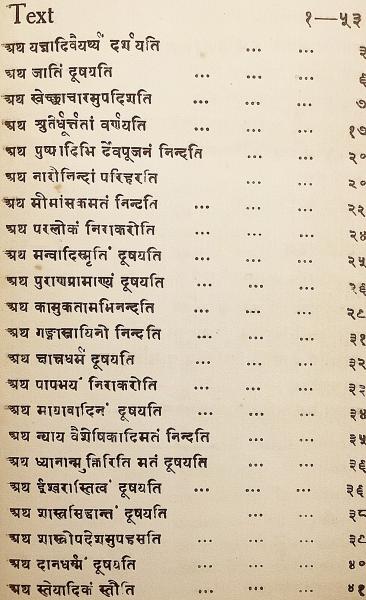 Text १—५३
अथ यज्ञादिवैयर्थ्यं दर्शयति ... ... ३
अथ जातिं दूषयति ... ... ... ६
अथ स्वेच्छाचारमुपदिशति ... ... ७
अथ श्रुतेर्धूर्त्ततां वर्णयति ... ... ... १७
अथ पुष्पादिभि र्देवपूजनं निन्दति ... ... २०
अथ नारीनिन्दां परिहरति ... ... २०
अथ मीमांसकमतं निन्दति ... ... ... २२
अथ परलोकं निराकरोति ... ... ... २४
अथ मन्वादिस्मृतिं दूषयति ... ... ... २५
अथ पुराणप्रामाण्यं दूषयति ... ... ... २६
अथ कामुकतामभिनन्दति ... ... ... २९
अथ गङ्गास्नायिनो निन्दति ... ... ... ३१
अथ क्षात्रधर्मं दूषयति ... ... ... ३२
अथ पापभयं निराकरोति ... ... ... ३३
अथ मायावादिनं दूषयति ... ... ... ३४
अथ न्याय वैशेषिकादिमतं निन्दति ... ... ३५
अथ ध्यानान्मुक्तिरिति मतं दूषयति ... ... ३६
अथ ईश्वरास्तित्वं दूषयति ... ... ... ३६
अथ शास्त्रसिद्धान्तं दूषयति ... ... ... ३८
अथ शास्त्रोपदेशमुपहसति ... ... ... ३९
अथ दानधर्म्मं दूषयति ... ... ... ४०
अथ स्तेयादिकं स्तौति ... ... ... ४१